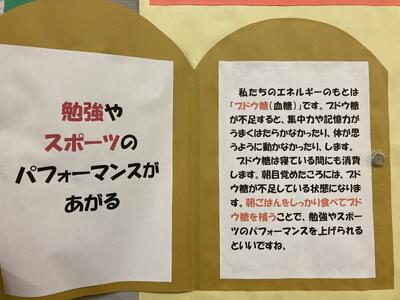 勉強や
スポーツの
パフォーマンスが
あがる
私たちのエネルギーのもとは
「ブドウ糖(血糖)」です。ブドウ糖
が不足すると、集中力や記憶力が
うまくはたらかなかったり、体が思
うように動かなかったり、します。
ブドウ糖は寝ている間にも消費
します。朝目覚めたころには、ブド
ウ糖が不足している状態になりま
す。朝ごはんをしっかり食べてブド
ウ糖を補うことで、勉強やスポー
ツのパフォーマンスを上げられる
といいですね。